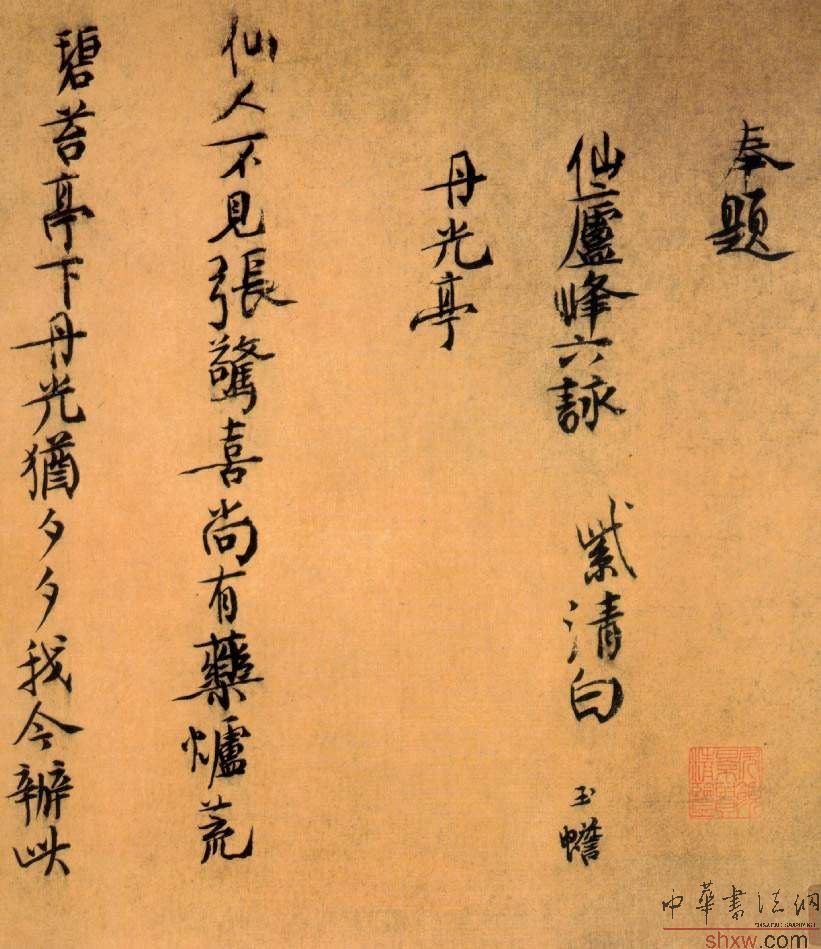 奉題
仙廬峰六詠 紫清白 玉蟾
丹光亭
仙人不見張驚喜尚有藥爐荒
碧苔亭下丹光猶夕夕我今辦此
中華書法網
shxw.com